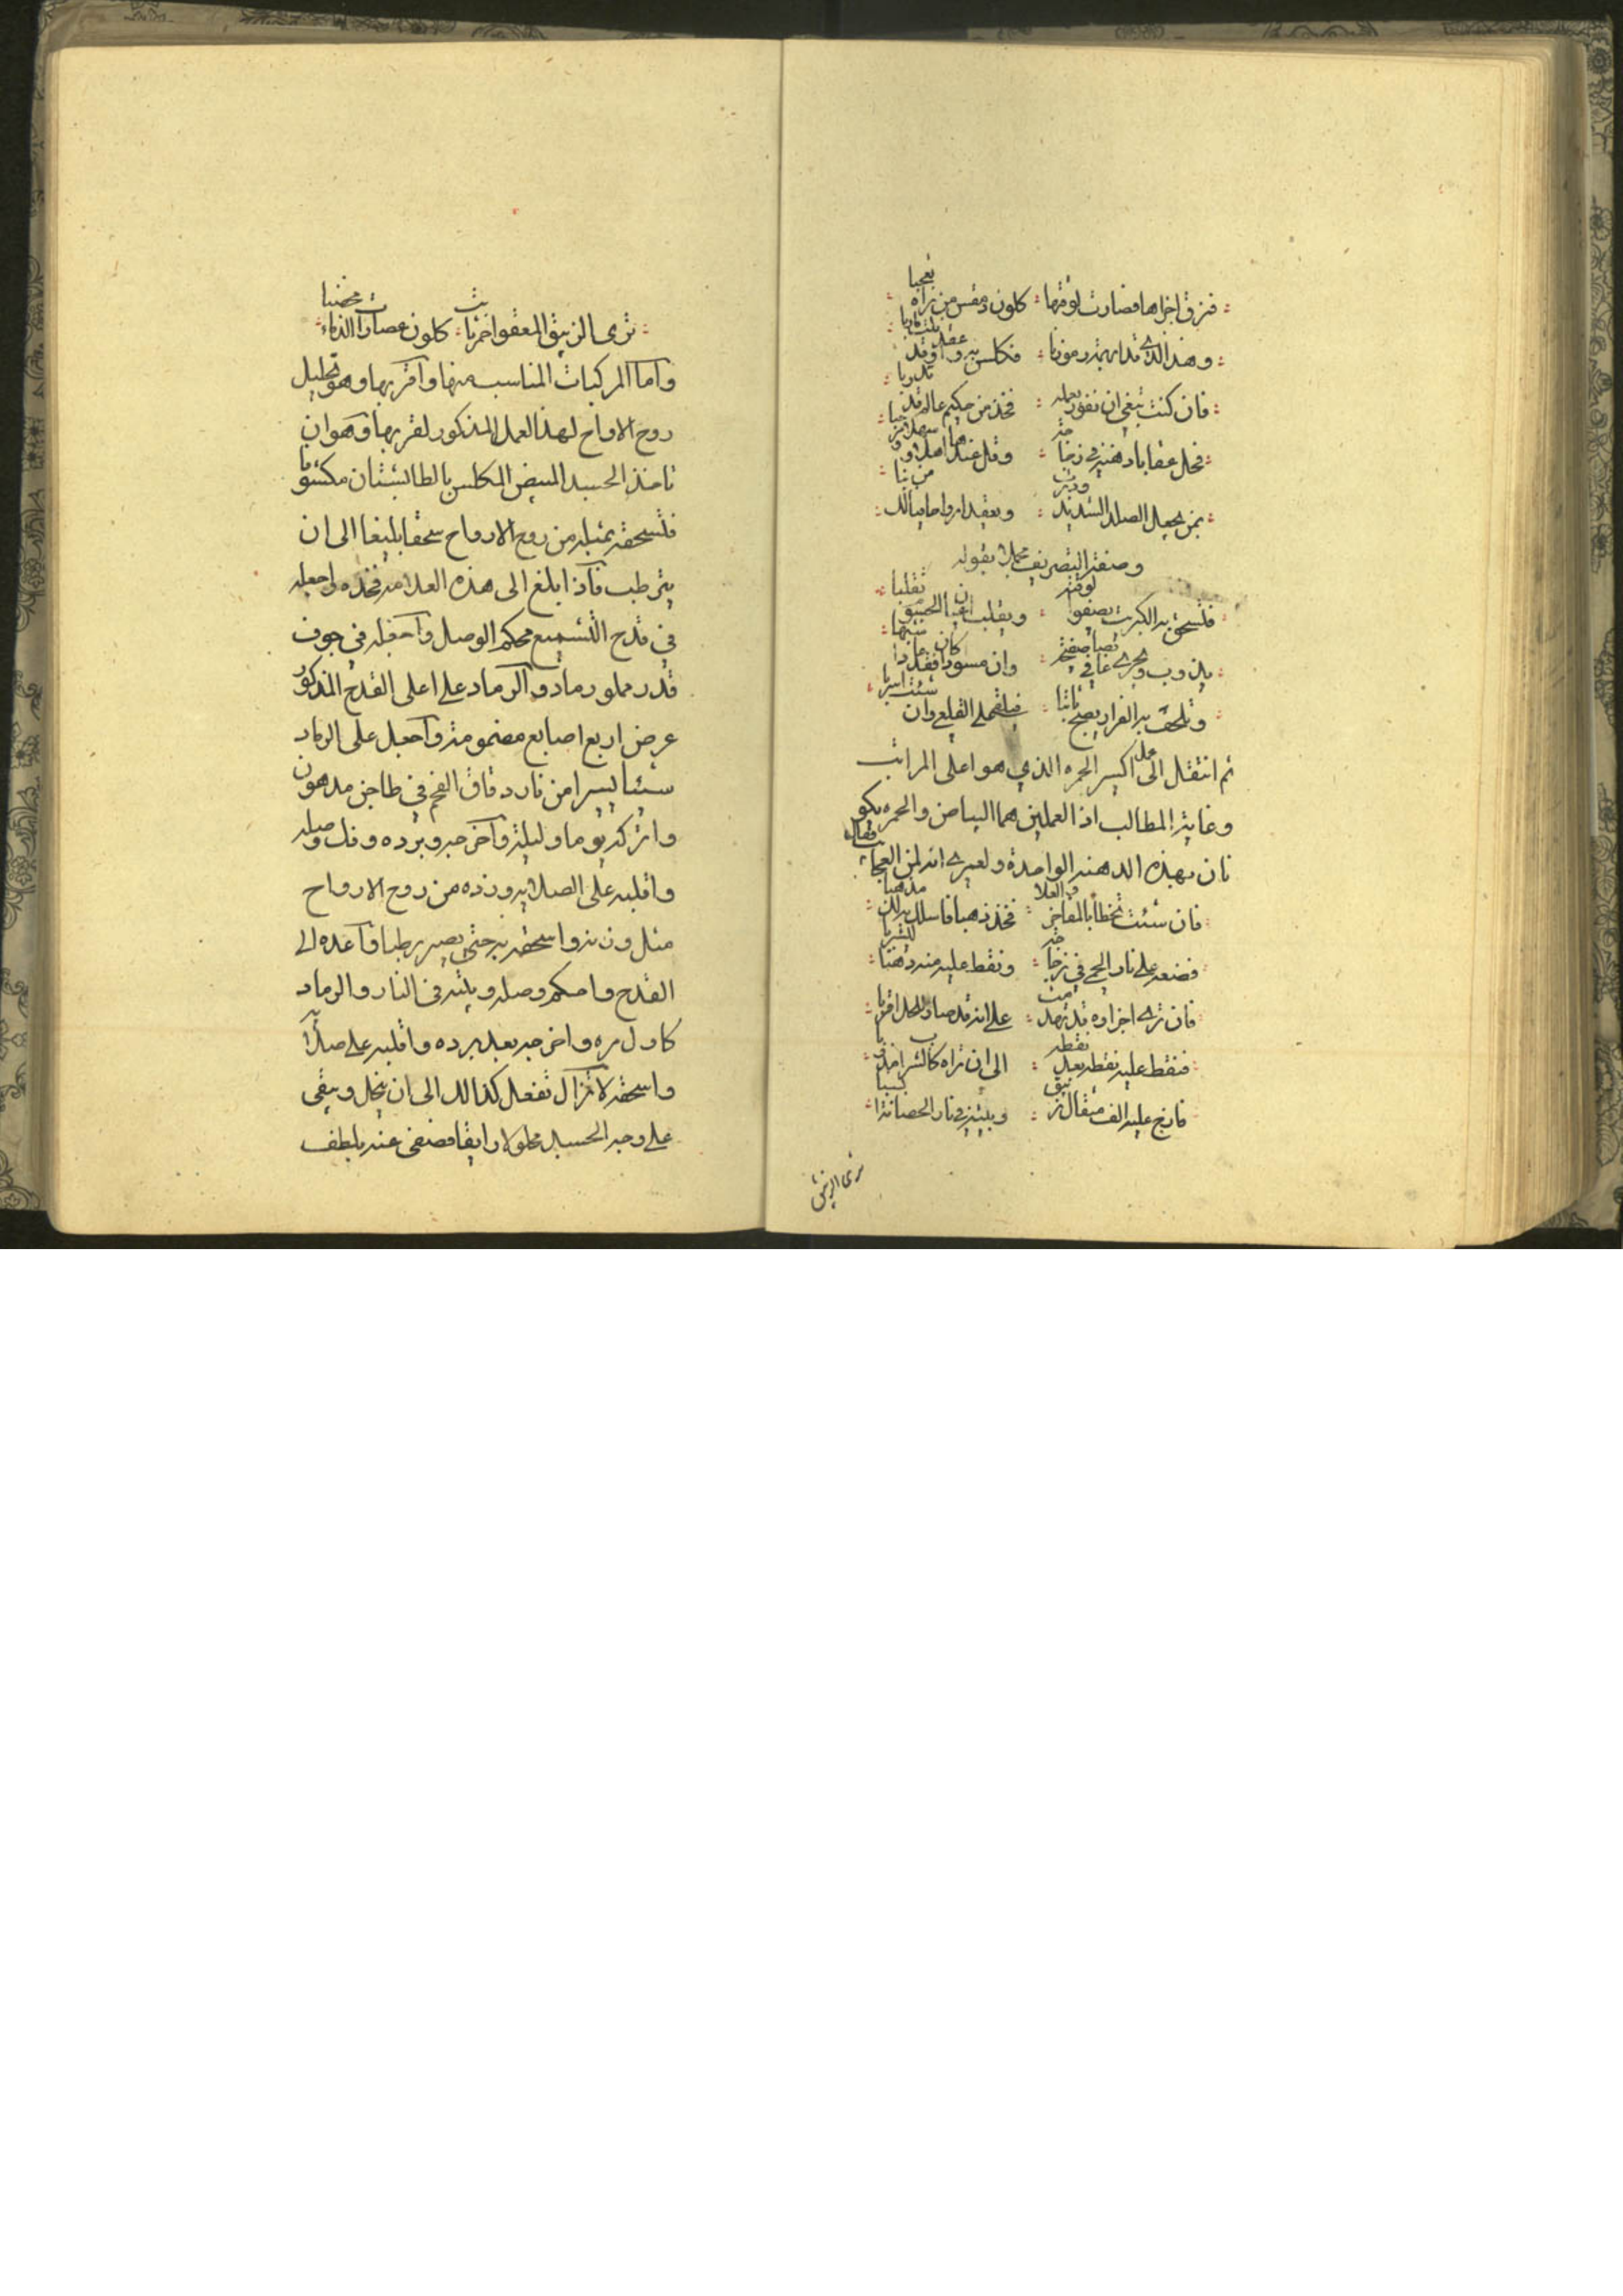 فزوق اجزاها فصارت لوقتها كلون دمقس من يراه تعجبا
وهذا الذي قد ابهمته رموزنا فكلس به واعقد
فان كنت تبغي ان تفوز بعمله فخذ من حكيم عالم قد
فحل عقابا دهنه في زجاجة وقل عندها اهلا وسهلا ومرحبا
بمن يجعل الصلد الشديد ويعقد ارواحا
وصفة التصريف محملا بقوله
فلتسحق به الكبريت يصفو لوقته ويقلب اعيان النحوس تقلبا
يذوب ويجري وان مسود افقد كان
وتلحق به الفرار يصبح ثابتا فيلقى على القلعي وان شئت اسربا
ثم انتقل الى عمل اكسير الحمرة الذي هو اعلى المراتب
وغاية المطالب اذ العملين هما البياض والحمرة يكو
نان بهذه الدهنة الواحدة ولعمري انه لمن العجائب فقال
فان شئت تحظى بالمفاخر والعلا فخذ ذهبا فاسلك به لك مذهبا
فضعه على نار الجحيم في زجاجة ونقط عليه منه دهنا ليشربا
فان ترى اجزاوه قد تهدمت على انه قد صار للحل اقربا
فنقط عليه نقطة بعد نقطة الى ان تراه كالشراب
فارم عليه الف مثقال زيبق وبيته في نار الحضانة
ترى الزيبق
ترى الزيبق المعقود احمر ثابت كلون عصارات الدماء مخضبا
واما المركبات المناسبه منها واقربها وهو تحليل
روح الارواح لهذا العمل المذكور لقربها وهو ان
تاخذ الجسد المبيض المكلس بالطاليشتان مكشوفا
فلتسحقه بمثله من روح الارواح سحقا بليغا الى ان
يترطب فاذا بلغ الى هذه العلامه فخذه واجعله
في قدح التشميع محكم الوصل واجعله في جوف
قدر مملو رماد والرماد على اعلى القدح المذكور
عرض اربع اصابع مضمومة واجعل على الرماد
شيئا يسيرا من نار دقاق الفحم في طاجن مدهون
واتركه يوما وليلة واخرجه وبرده وفك وصله
واقلبه على الصلايه وزده من روح الارواح
مثل وزنه واسحقه به حتى يصير رطبا واعده الى
القدح واحكم وصله وبيته في النار والرماد
كاول مره واخرجه بعد برده واقلبه على صلاية
واسحقه لا تزال تفعل كذالك الى ان ينحل ويبقى
على وجه الجسد محلولا رايقا فصفى عنه بلطف